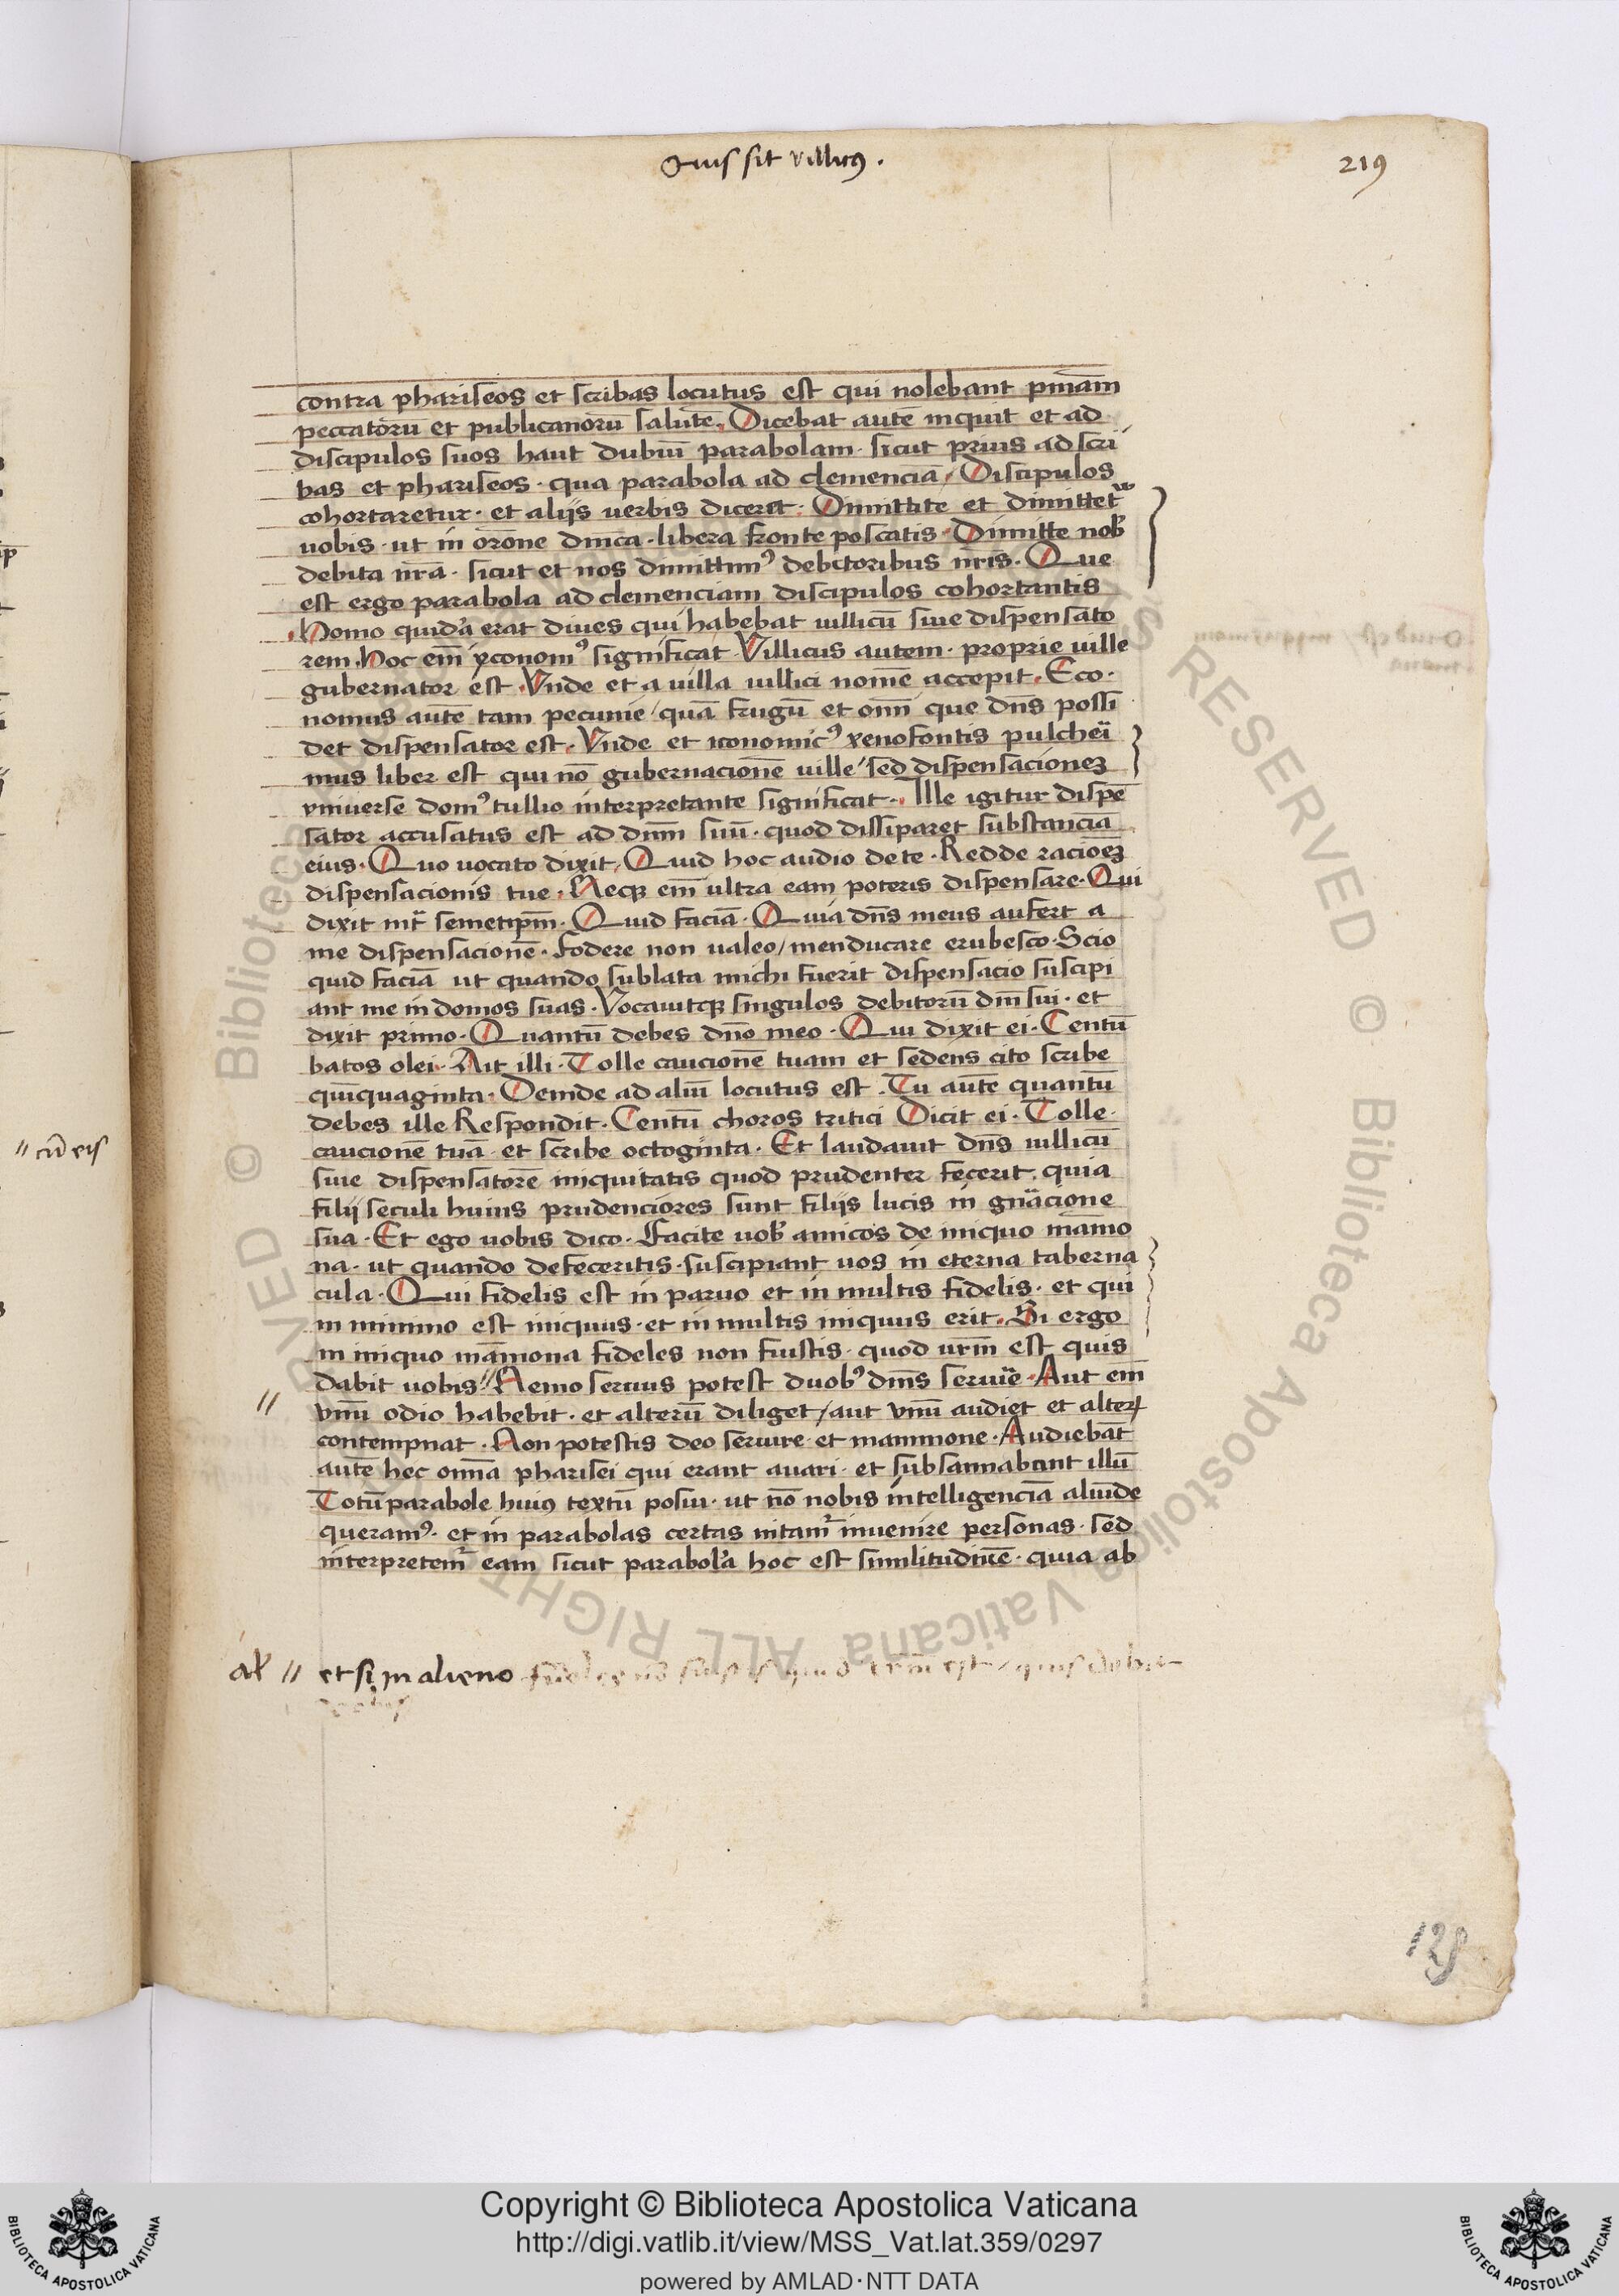 Quis sit villicꝰ.
219
contra phariseos et scribas locutus est qui nolebant pniam̄
peccatorū et publicanorū salutē. Dicebat autē inquit et ad
discipulos suos haut dubiū parabolam. sicut prius ad scri
bas et phariseos. qua parabola ad clemenciā / Discipulos
cohortaretur. et alijs verbis diceret. Dimittite et dimittet̄
uobis. ut in orōne dnica. libera fronte poscatis. Dimitte nob̄
debita nr̄a. sicut et nos dimittimꝰ debitoribus nr̄is. Que
est ergo parabola ad clemenciam discipulos cohortantis
Homo quidā erat diues qui habebat uillicū siue dispensato
rem. Hoc em̄ yconomꝰ significat Villicus autem. proprie uille
gubernator est. Vnde et a uilla uillici nomē accepit. Eco.
nomus autē tam pecunie / quā frugū et om̄i que dn̄s possi
det dispensator est. Vnde et iconomicꝰ xenofontis pulcher̄i
mus liber est qui nō gubernacionē uille / sed dispensacionez
vniuerse domꝰ tullio interpretante significat. Ille igitur dispē
sator accusatus est ad dnm̄ suū. quod dissiparet substanciā
eius. Quo uocato dixit, Quid hoc audio de te. Redde racioēz
dispensacionis tue. Neqꝫ em̄ ultra eam poteris dispensare. Qui
dixit int̄ semetipm̄. Quid faciā. Quia dn̄s meus aufert a
me dispensacionē. fodere non ualeo / menducare erubesco. Scio
quid faciā ut quando sublata michi fuerit dispensacio suscipi
ant me in domos suas. Vocauitqꝫ singulos debitorū dn̄i sui. et
dixit primo. Quantū debes dn̄o meo. Qui dixit ei. Centū
batos olei. Ait illi. Tolle caucionē tuam et sedens cito scribe
quīquaginta. Deinde ad aliū locutus est. Tu autē quantū
debes ille Respondit. Centū choros tritici Dicit ei. Tolle.
caucionē tuā et scribe octoginta. Et laudauit dn̄s uillicū
siue dispensatorē iniquitatis quod prudenter fecerit. quia
filij seculi huius prudenciores sunt filijs lucis in gn̄acione
sua. Et ego uobis dico. Facite uob̄ amicos de iniquo māmo
na. ut quando defeceritis. suscipiant uos in eterna taberna
cula. Qui fidelis est in paruo et in multis fidelis. et qui
in minimo est iniquus. et in multis iniquus erit. Si ergo
in iniquo māmona fideles non fuistis. quod ur̄m est quis
dabit uobis // Nemo seruus potest duobꝰ dn̄is seruir̄e. Aut em̄
vnū odio habebit. et alterū diliget / aut vnū audiet et alterꝝ
contempnat. Non potestis deo seruire et mammone. Audiebāt
autē hec om̄ia pharisei qui erant auari. et subsannabant illū
Totū parabole huiꝰ textū posui. ut nō nobis intelligenciā aliūde
queramꝰ. et in parabolas certas nitamr̄ inuenire personas. sed
interpretemr̄ eam sicut parabolā hoc est similitudinē. quia ab
// cū eis
//
al̄ // et si in alieno fideles nō fuistis quod ur̄m est / quis dabit
uobis
129
Copyright © Biblioteca Apostolica Vaticana
http://digi.vatlib.it/view/MSS_Vat.lat.359/0297
powered by AMLAD·NTT DATA
BIBLIOTECA APOSTOLICA VATICANA
BIBLIOTECA APOSTOLICA VATICANA
© Biblioteca Apostolica Vaticana ALL RIGHTS RESERVED